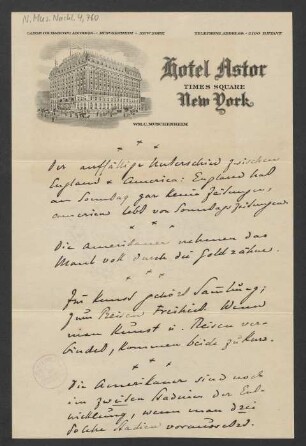 N. Mus. Nachl. 4, 760
Hotel Astor
TIMES SQUARE
New York.
WM. C. MUSCHENHEIM
* * *
Der auffällige Unterschied zwischen
England & Amerika: England hat
am Sonntag gar keine Zeitungen,
Amerika lebt von Sonntagszeitungen
* * *
Die Amerikaner nehmen das
Maul voll durch die Goldzähne.
* * *
Zur Kunst gehört Samlung;
zum Reisen Freiheit. Wenn
man Kunst u. Reisen ver-
bindet, kommen beide zu kurz.
* * *
Die Amerikaner sind noch
im zweiten Stadium der Ent-
wicklung, wenn man drei
solche Stadien voraussetzt.